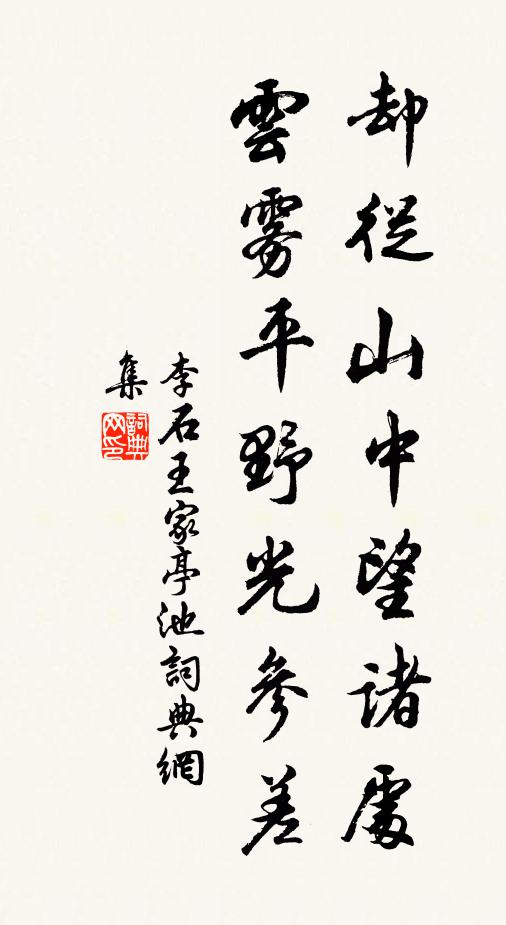 却從山中望諸處
雲霧平野光參差
李石王家亭池詞典網
集
詞典網印